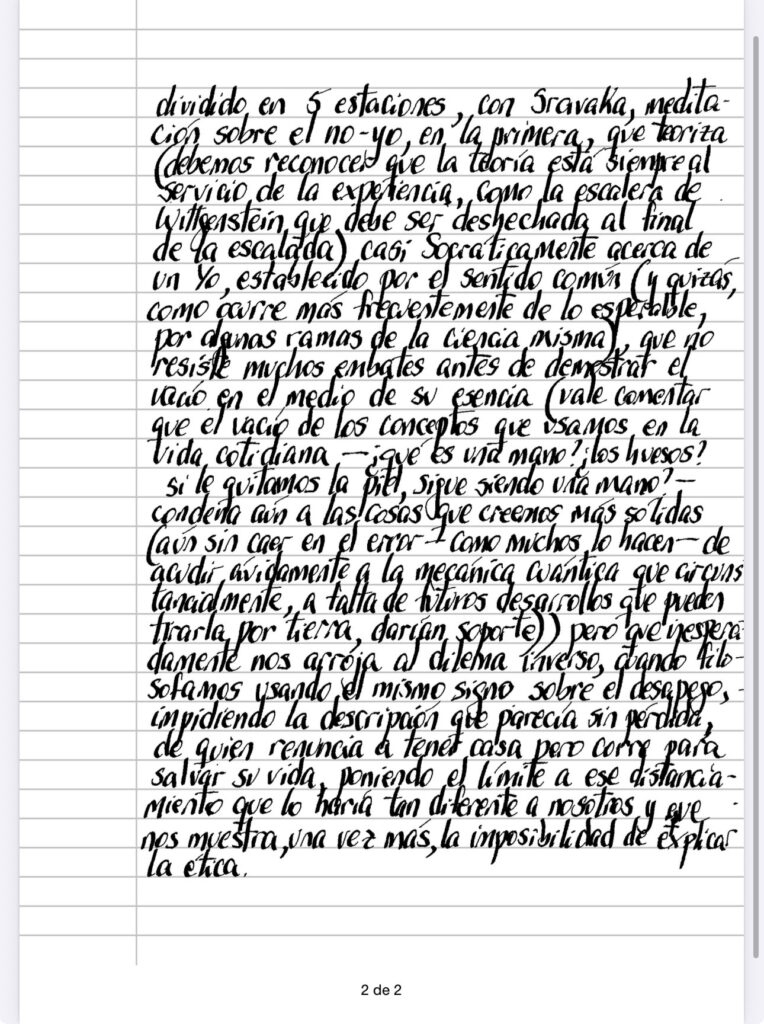 dividido en 5 estaciones, con Sravaka, medita-
ción sobre el no-yo, en la primera, que teoriza
(debemos reconocer que la teoría está siempre al
servicio de la experiencia, como la escalera de
Wittgenstein que debe ser deshechada al final
de la escalada) casi Socráticamente acerca de
un Yo, establecido por el sentido común (y quizás,
como ocurre más frecuentemente de lo esperable,
por algunas ramas de la ciencia misma), que no
resiste muchos embates antes de demostrar el
vacío en el medio de su esencia (vale comentar
que el vacío de los conceptos que usamos en la
vida cotidiana —¿qué es una mano? ¿los huesos?
si le quitamos la piel, sigue siendo una mano?—
condena aún a las cosas que creemos más solidas
(aún sin caer en el error — como muchos lo hacen — de
acudir ávidamente a la mecánica cuántica que circuns
tancialmente, a falta de futuros desarrollos que pueden
tirarla por tierra, darían soporte)) pero que inespera
damente nos arroja al dilema inverso, cuando filo-
sofamos usando el mismo signo sobre el desapego,
impidiendo la descripción que parecía sin pérdida,
de quien renuncia a tener casa pero corre para
salvar su vida, poniendo el límite a ese distancia-
miento que lo haría tan diferente a nosotros y que
nos muestra, una vez más, la imposibilidad de explicar
la etica.
2 de 2